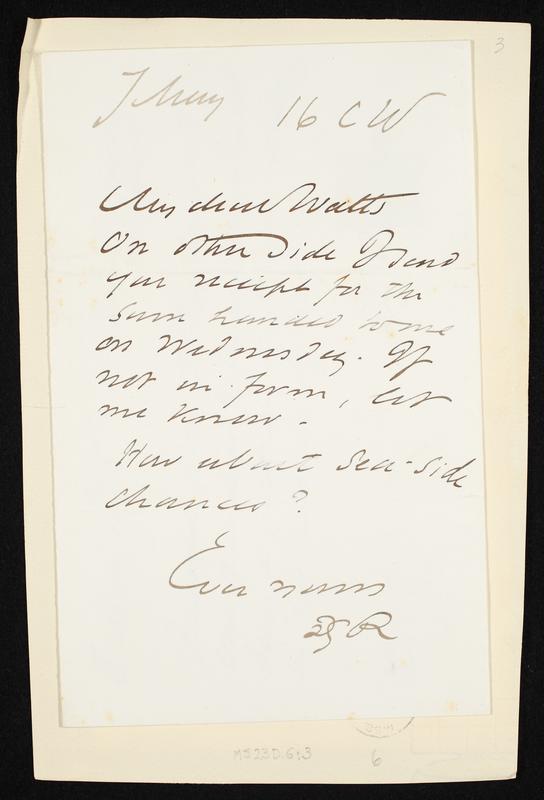 3
16 CW
My dear Watts
On other side I send
you receipt for the
sum handed to me
on Wednesday. If
not in form, let
me know.
How about Sea-side
chances?
Ever yours
DGR
MS23D.6:3
6